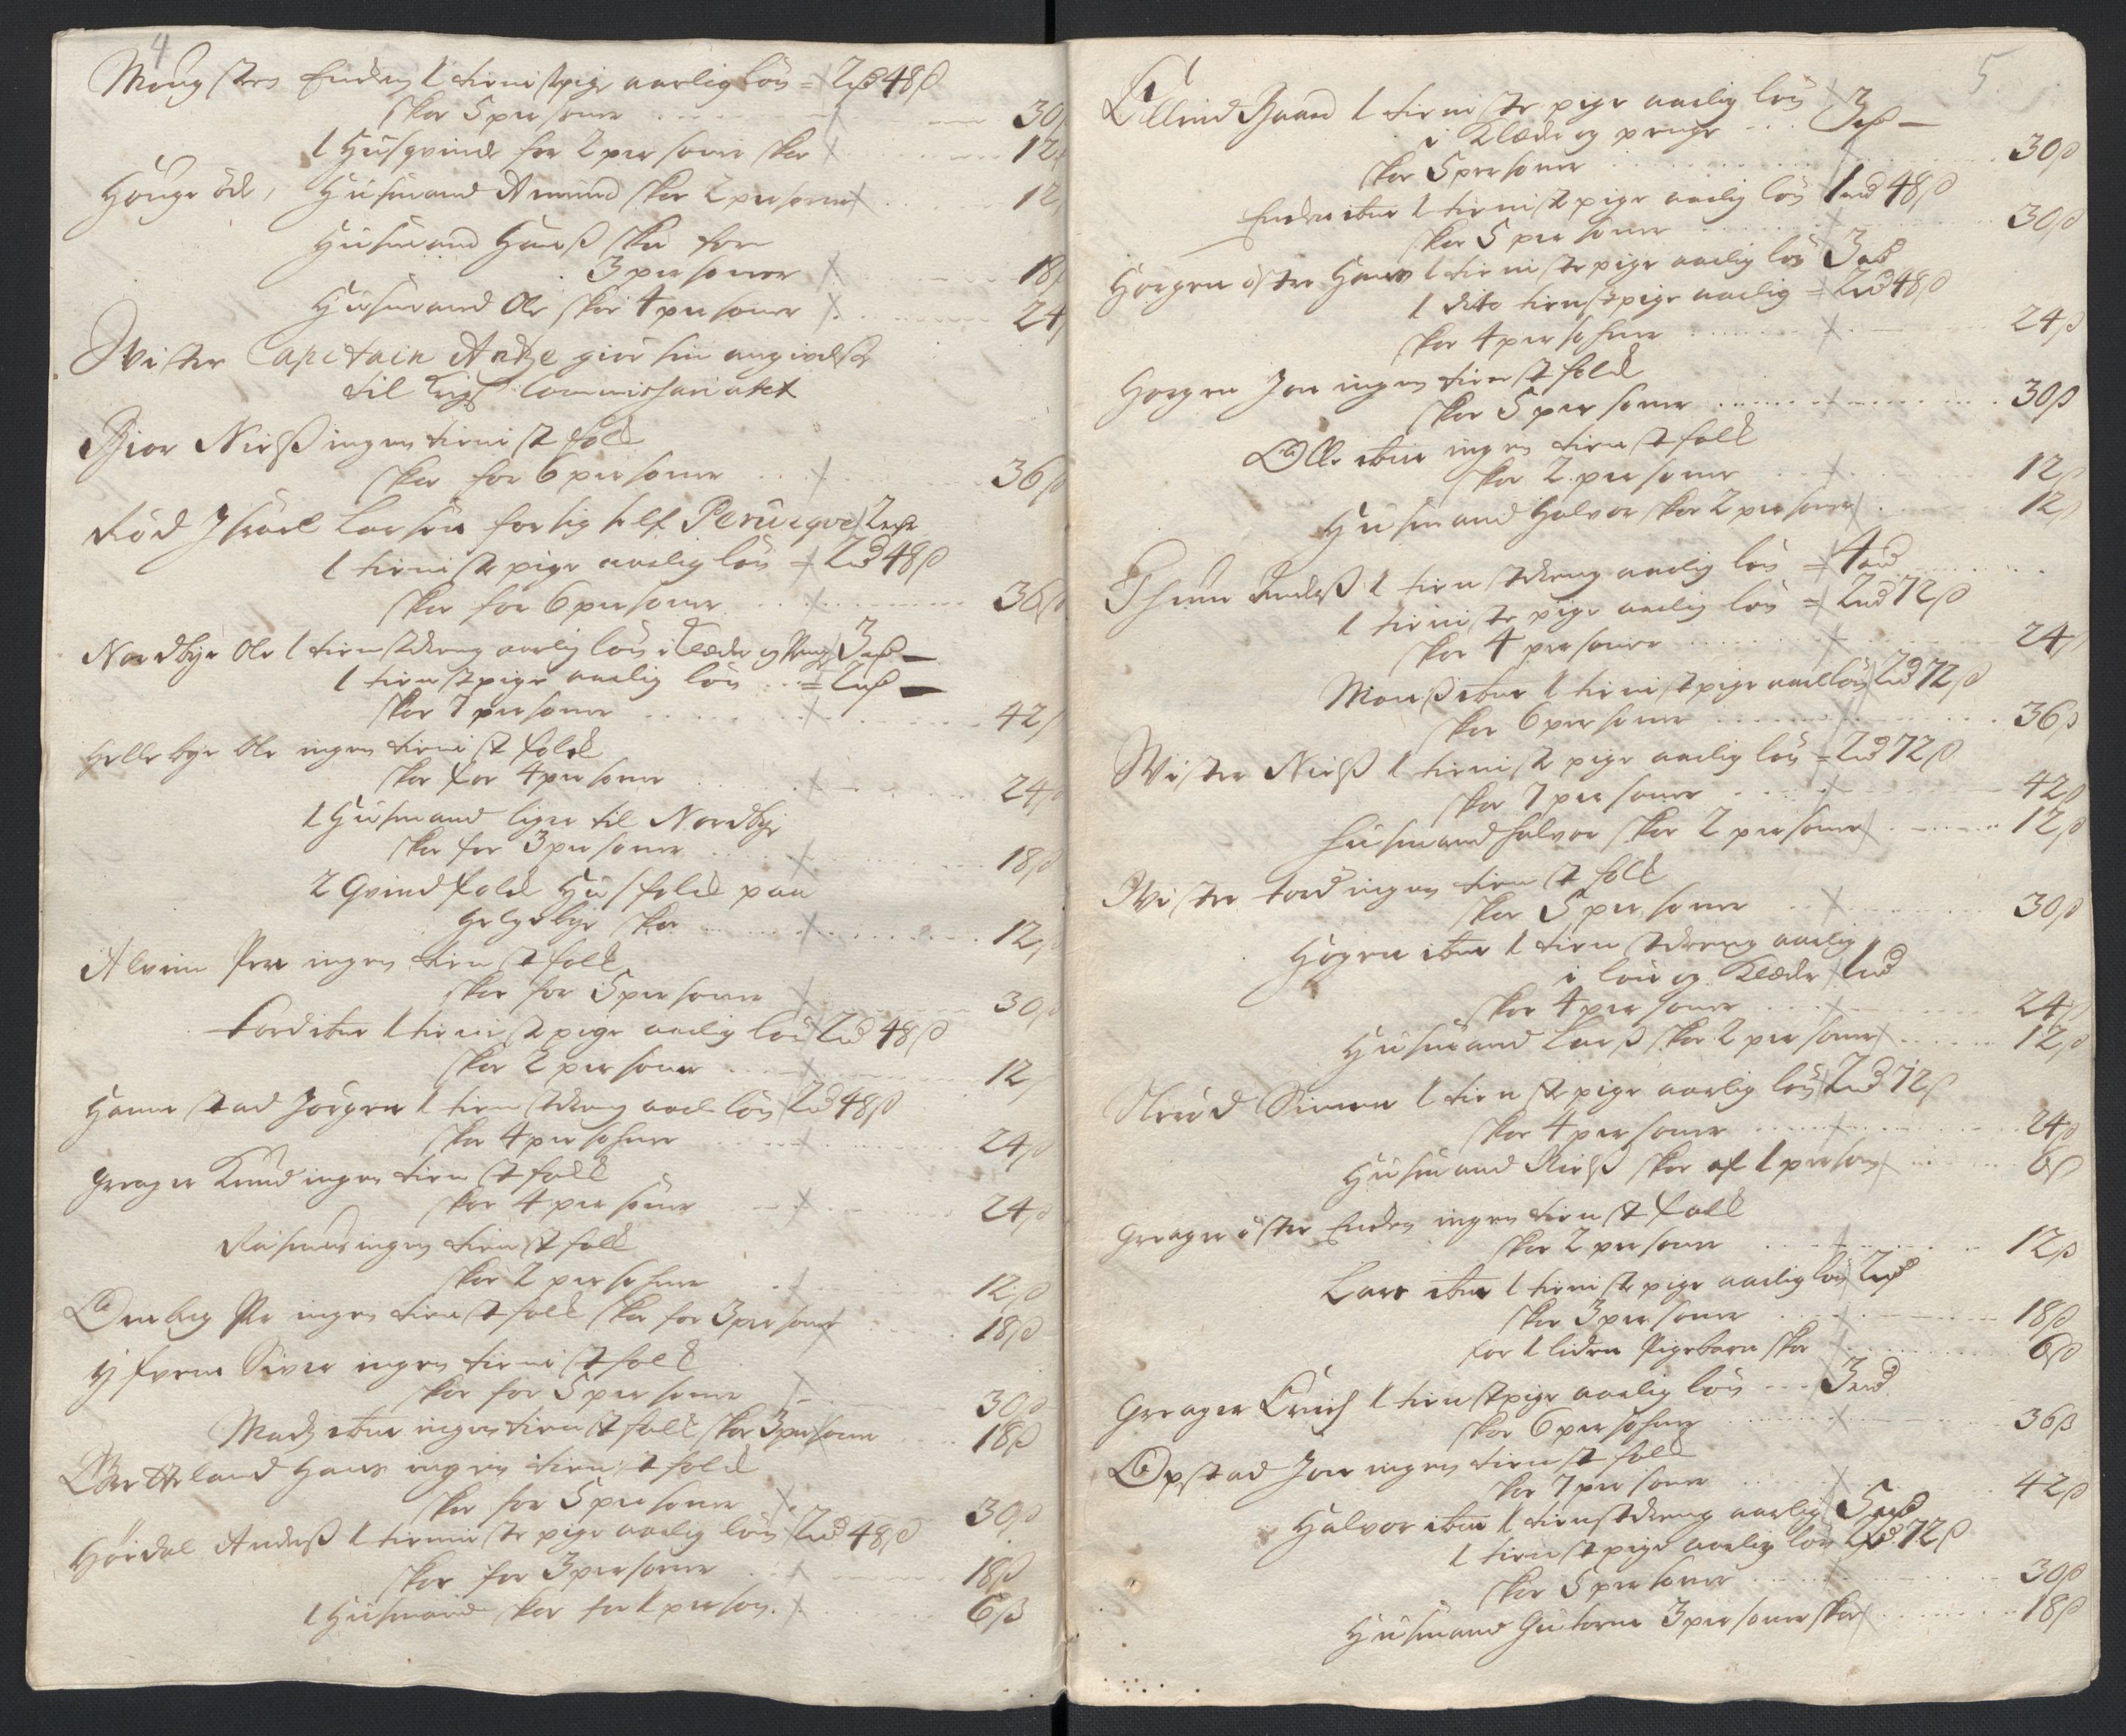 4
Moug Enders 1 tieniste pige aarlig løn = 2rd 48 ß
skor 5 personer 30
1 Husqvinde for 2 personer skor 12
Houge öde, Husmand Amund skor 2 personer 12
Husmand Hanß skor for
3 personer 18
Husmand Ole skor 4 personer 24
Wister Capitain Antze giør sin angivelse
til Krigs Commissariatet
Bior Nielß ingen tienist folk
skor for 6 personer 36 ß
Rød Israel Larsen for sig self Peruqve 2rd
1 tieniste pige aarlig løn = 2rd 48 ß
skor for 6 personer 36 ß
Nordbye Ole 1 tienstdreng aarlig løn i Klæder og Penge 3rd
1 tienstpige aarlig løn = 2rd
skor 7 personer 42 ß
Hellebye Ole ingen tienist folk
skor for 4 personer 24 ß
1 Husmand ligger til Nordbye
skor for 3 personer 18 ß
2 Qvindfolk Husfolk paa
Helgebye skor 12 ß
Alvim Per ingen tienst folk
skor for 5 personer 30 ß
Tord ibm 1 tienist pige aarlig løn 2rd 48 ß
skor 2 personer 12 ß
Hannestad Jörgen 1 tienstdreng aarl løn 2rd 48 ß
skor 4 personer 24 ß
Greager Knud ingen tienst folk
skor 4 personer 24 ß
Rasmus ingen tienst folk
skor 2 personer 12 ß
Per ingen tienst folk skor for 3 personer 18 ß
Siver ingen tienist folk
skor for 5 personer 30 ß
Madz ibm ingen tienst folk skor 3 personer 18 ß
Hans ingen tienst folk
skor for 5 personer 30 ß
Hördal Anderß 1 tieniste pige aarlig løn 2rd 48 ß
skor for 3 personer 18 ß
1 Husmand skor for 1 person 6 ß
5
Gaard 1 tieniste pige aarlig løn
i Klæde og penge 3rd
skor 5 personer 30 ß
Enders ibm 1 tienist pige aarlig løn 1rd 48 ß
skor 5 personer 30 ß
Horgen öster Hans 1 tieniste pige aarlig løn 3rd
1 dito tienstpige aarlig = 2rd 48 ß
skor 4 personer 24 ß
Horgen Jon ingen tienst folk
skor 5 personer 30 ß
Olle ibm ingen tienst folk
skor 2 personer 12 ß
Husmand Halvor skor 2 personer 12 ß
Thune Anderß 1 tienstdreng aarlig løn = 4rd
1 tieniste pige aarlig løn = 2rd 72 ß
skor 4 personer 24 ß
Monß ibm 1 tienist pige aarl løn 2rd 72 ß
skor 6 personer 36 ß
Wister Nielß 1 tienist pige aarlig løn = 2rd 72 ß
skor 7 personer 42 ß
Husmand Halvor skor 2 personer 12 ß
Wister Tord ingen tienst folk
skor 5 personer 30 ß
Hogen ibm 1 tienstdreng aarlig
i løn og Klæder 1rd
skor 4 personer 24 ß
Husmand Larß skor 2 personer 12 ß
Simen 1 tienste pige aarlig løn 2rd 72 ß
skor 4 personer 24 ß
Husmand Nielß skor af 1 person 6 ß
Greager öster Enders ingen tienst folk
skor 2 personer 12 ß
Lars ibm 1 tieniste pige aarlig løn 2rd
skor 3 personer 18 ß
for 1 liden Pigebarn skor 6 ß
Greager Erich 1 tienstpige aarlig løn 3rd
skor 6 personer 36 ß
Opstad Jon ingen tienst folk
skor 7 personer 42 ß
Halvor ibm 1 tienstdreng aarlig 5rd
1 tienstpige aarlig løn 2rd 72 ß
skor 5 personer 30 ß
Husmand Gutorm 3 personer skor 18 ß